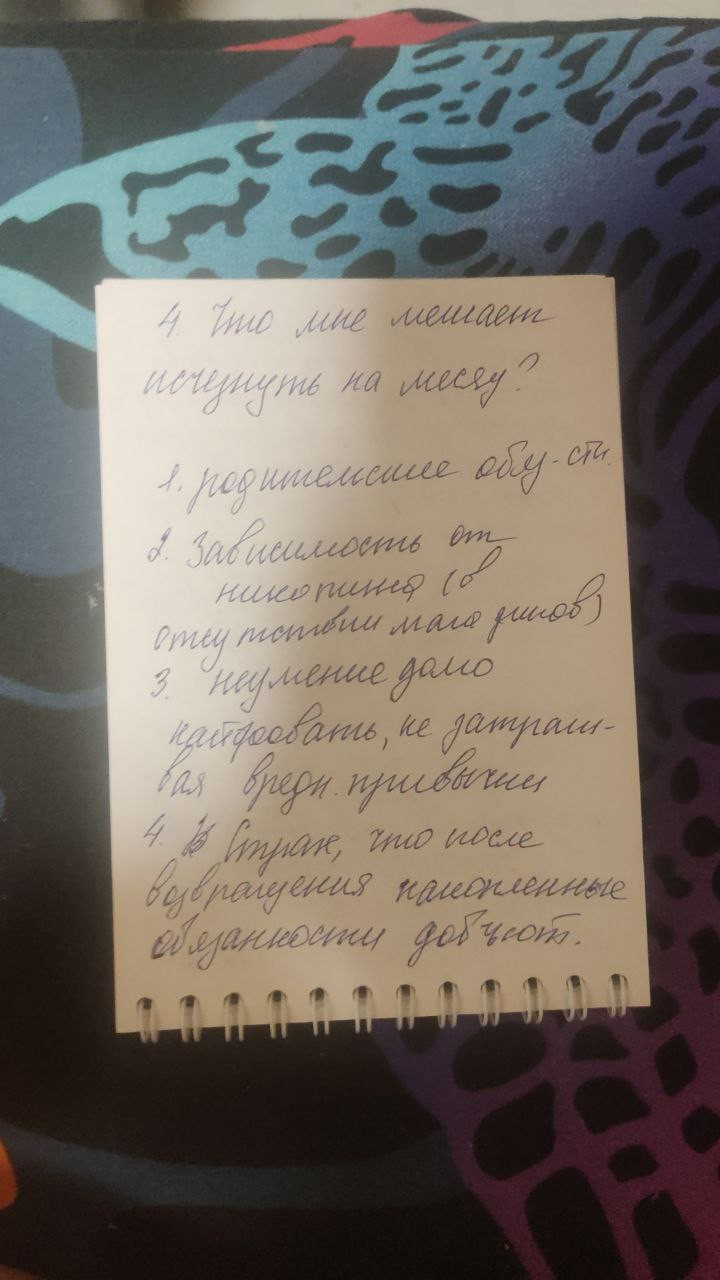 4. Что мне мешает
исчезнуть на месяц?
1. родительские обяз-сти.
2. Зависимость от
никотина (в
отсутствии магазинов)
3. неумение долго
кайфовать, не затраги-
вая вредн. привычки
4. Страх, что после
возвращения накопленные
обязанности добьют.